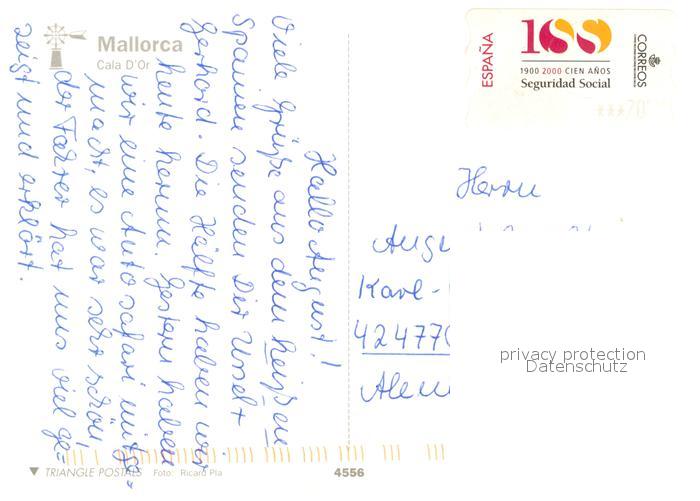 Mallorca
Cala D'Or
Hallo August!
Viele Grüße aus dem heißen
Spanien senden Dir Ursel +
Gerhard. Die Hälfte haben wir
heute herum. Gestern haben
wir eine Autosafari mitge-
macht, es war sehr schön
der Fahrer hat uns viel ge=
zeigt und erklärt.
ESPAÑA
100
1900 2000 CIEN AÑOS
Seguridad Social
CORREOS
***70
Herrn
Augu
Karl-
42477
Alem
privacy protection
Datenschutz
TRIANGLE POSTALS Foto: Ricard Pla
4556